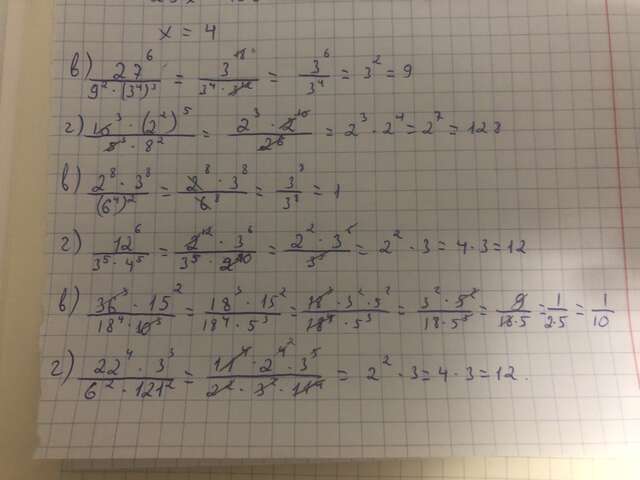 x = 4
в) 27⁶ / (9² · (3⁴)³) = 3¹⁸ / (3⁴ · 3¹²) = 3⁶ / 3⁴ = 3² = 9
г) 10³ · (2²)⁵ / (5³ · 8²) = 2³ · 2¹⁰ / 2⁶ = 2³ · 2⁴ = 2⁷ = 128
в) 2⁸ · 3⁸ / (6⁴)² = 2⁸ · 3⁸ / 6⁸ = 3⁸ / 3⁸ = 1
г) 12⁶ / (3⁵ · 4⁵) = 2¹² · 3⁶ / (3⁵ · 2¹⁰) = 2² · 3⁶ / 3⁵ = 2² · 3 = 4 · 3 = 12
в) 36³ · 15² / (18⁴ · 10³) = 18³ · 15² / (18⁴ · 5³) = 18³ · 3² · 5² / (18⁴ · 5³) = 3² · 5² / (18 · 5³) = 9 / (18 · 5) = 1 / (2 · 5) = 1 / 10
г) 22⁴ · 3³ / (6² · 121²) = 11⁴ · 2⁴ · 3³ / (2² · 3² · 11⁴) = 2² · 3 = 4 · 3 = 12.